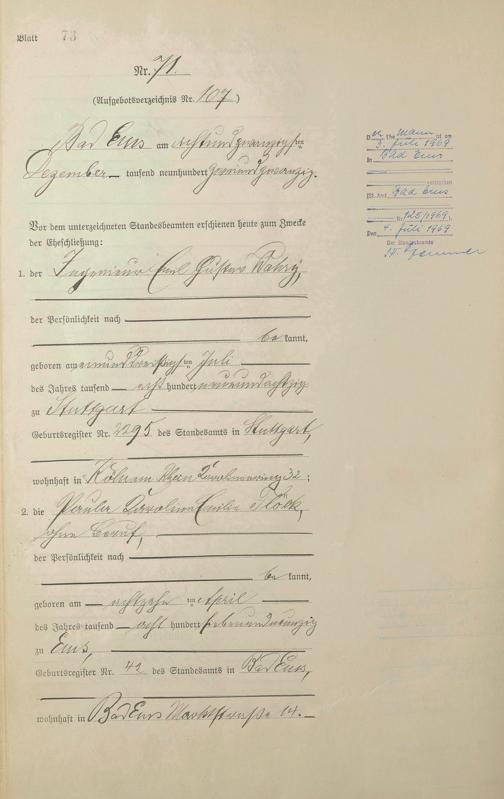 Blatt 73
Nr. 71.
(Aufgebotsverzeichnis Nr. 107)
Bad Ems am achtundzwanzigsten
Dezember tausend neunhundert zwanzig.
Vor dem unterzeichneten Standesbeamten erschienen heute zum Zwecke
der Eheschließung:
1. der Ingenieur Carl Gustav
der Persönlichkeit nach
be kannt,
geboren am ten Juli
des Jahres tausend acht hundert neunundachtzig
zu Stuttgart
Geburtsregister Nr. 2295 des Standesamts in Stuttgart,
wohnhaft in Köln am Rhein 32;
2. die Paula Carolina Emilie Flöck,
ohne Beruf,
der Persönlichkeit nach
be kannt,
geboren am achtzehn ten April
des Jahres tausend acht hundert siebenundneunzig
zu Ems,
Geburtsregister Nr. 42 des Standesamts in Bad Ems,
wohnhaft in Bad Ems Marktstraße 14.
Der Mann ist am
3. Juli 1969
in Bad Ems
verstorben
St.Amt Bad Ems
Nr. 125/1969).
Den 4. Juli 1969
Der Standesbeamte